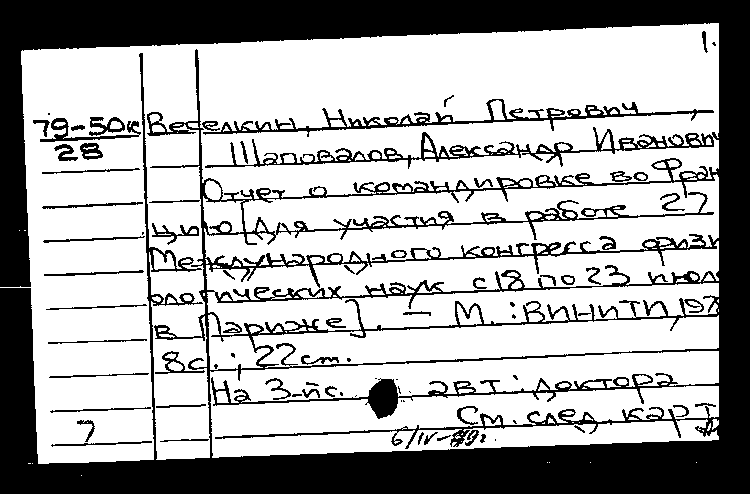 1.
79-50к Веселкин, Николай Петрович,
28 Шаповалов, Александр Иванович
Отчет о командировке во Фран
цию [для участия в работе 27
Международного конгресса физи
ологических наук с 18 по 23 июля
в Париже]. — М. : ВИНИТИ, 197
8с. ; 22см.
На 3-йс. авт.: доктора
См. след. карт
7 6/IV-79г.